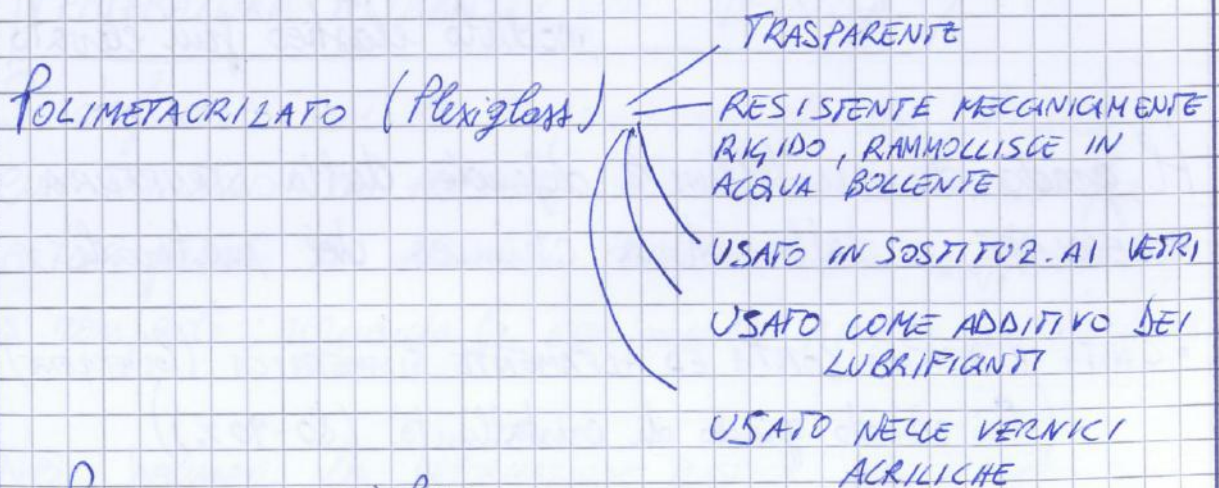 TRASPARENTE
POLIMETACRILATO (Plexiglass)
RESISTENTE MECCANICAMENTE
RIGIDO, RAMMOLLISCE IN
ACQUA BOLLENTE
USATO IN SOSTITUZ. AI VETRI
USATO COME ADDITIVO DEI
LUBRIFICANTI
USATO NELLE VERNICI
ACRILICHE